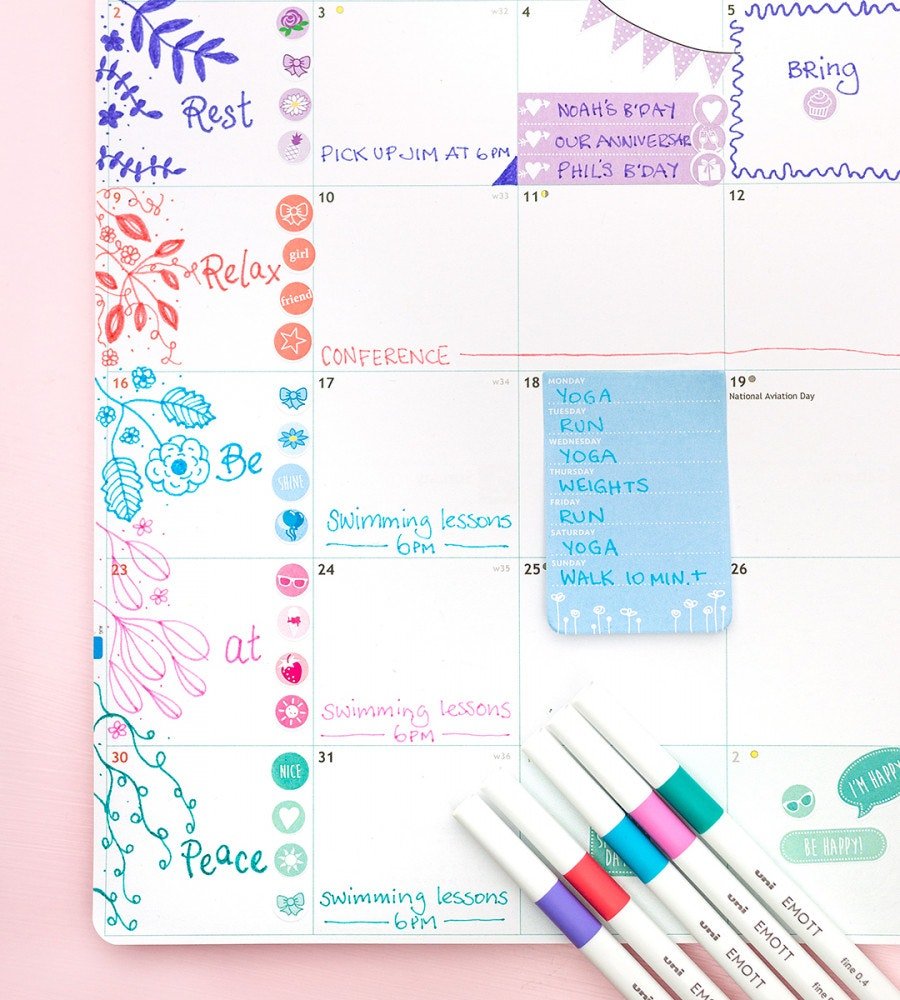 2
3
w32
4
5
Rest
PICK UP JIM AT 6PM
NOAH'S B'DAY
OUR ANNIVERSAR
PHIL'S B'DAY
BRing
9
10
w33
11
12
Relax
girl
friend
CONFERENCE
16
17
w34
18
19
National Aviation Day
Be
SHINE
Swimming lessons
6PM
MONDAY
YOGA
TUESDAY
RUN
WEDNESDAY
YOGA
THURSDAY
WEIGHTS
FRIDAY
RUN
SATURDAY
YOGA
SUNDAY
WALK 10 MIN.+
23
24
w35
25
26
at
Swimming lessons
6PM
30
31
w36
2
NICE
Peace
Swimming lessons
6PM
I'M HAPPY
BE HAPPY!
uni EMOTT fine 0.4
uni EMOTT fine
uni EMOTT
uni EMOTT
uni